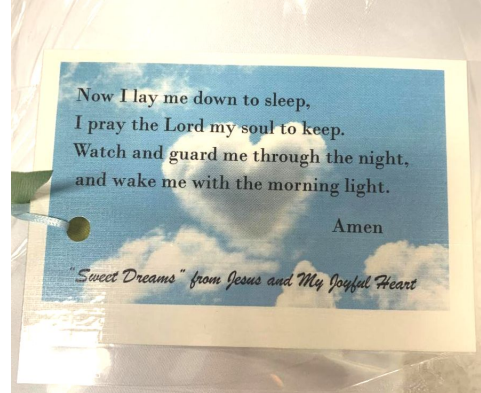 Now I lay me down to sleep,
I pray the Lord my soul to keep.
Watch and guard me through the night,
and wake me with the morning light.
Amen
"Sweet Dreams" from Jesus and My Joyful Heart